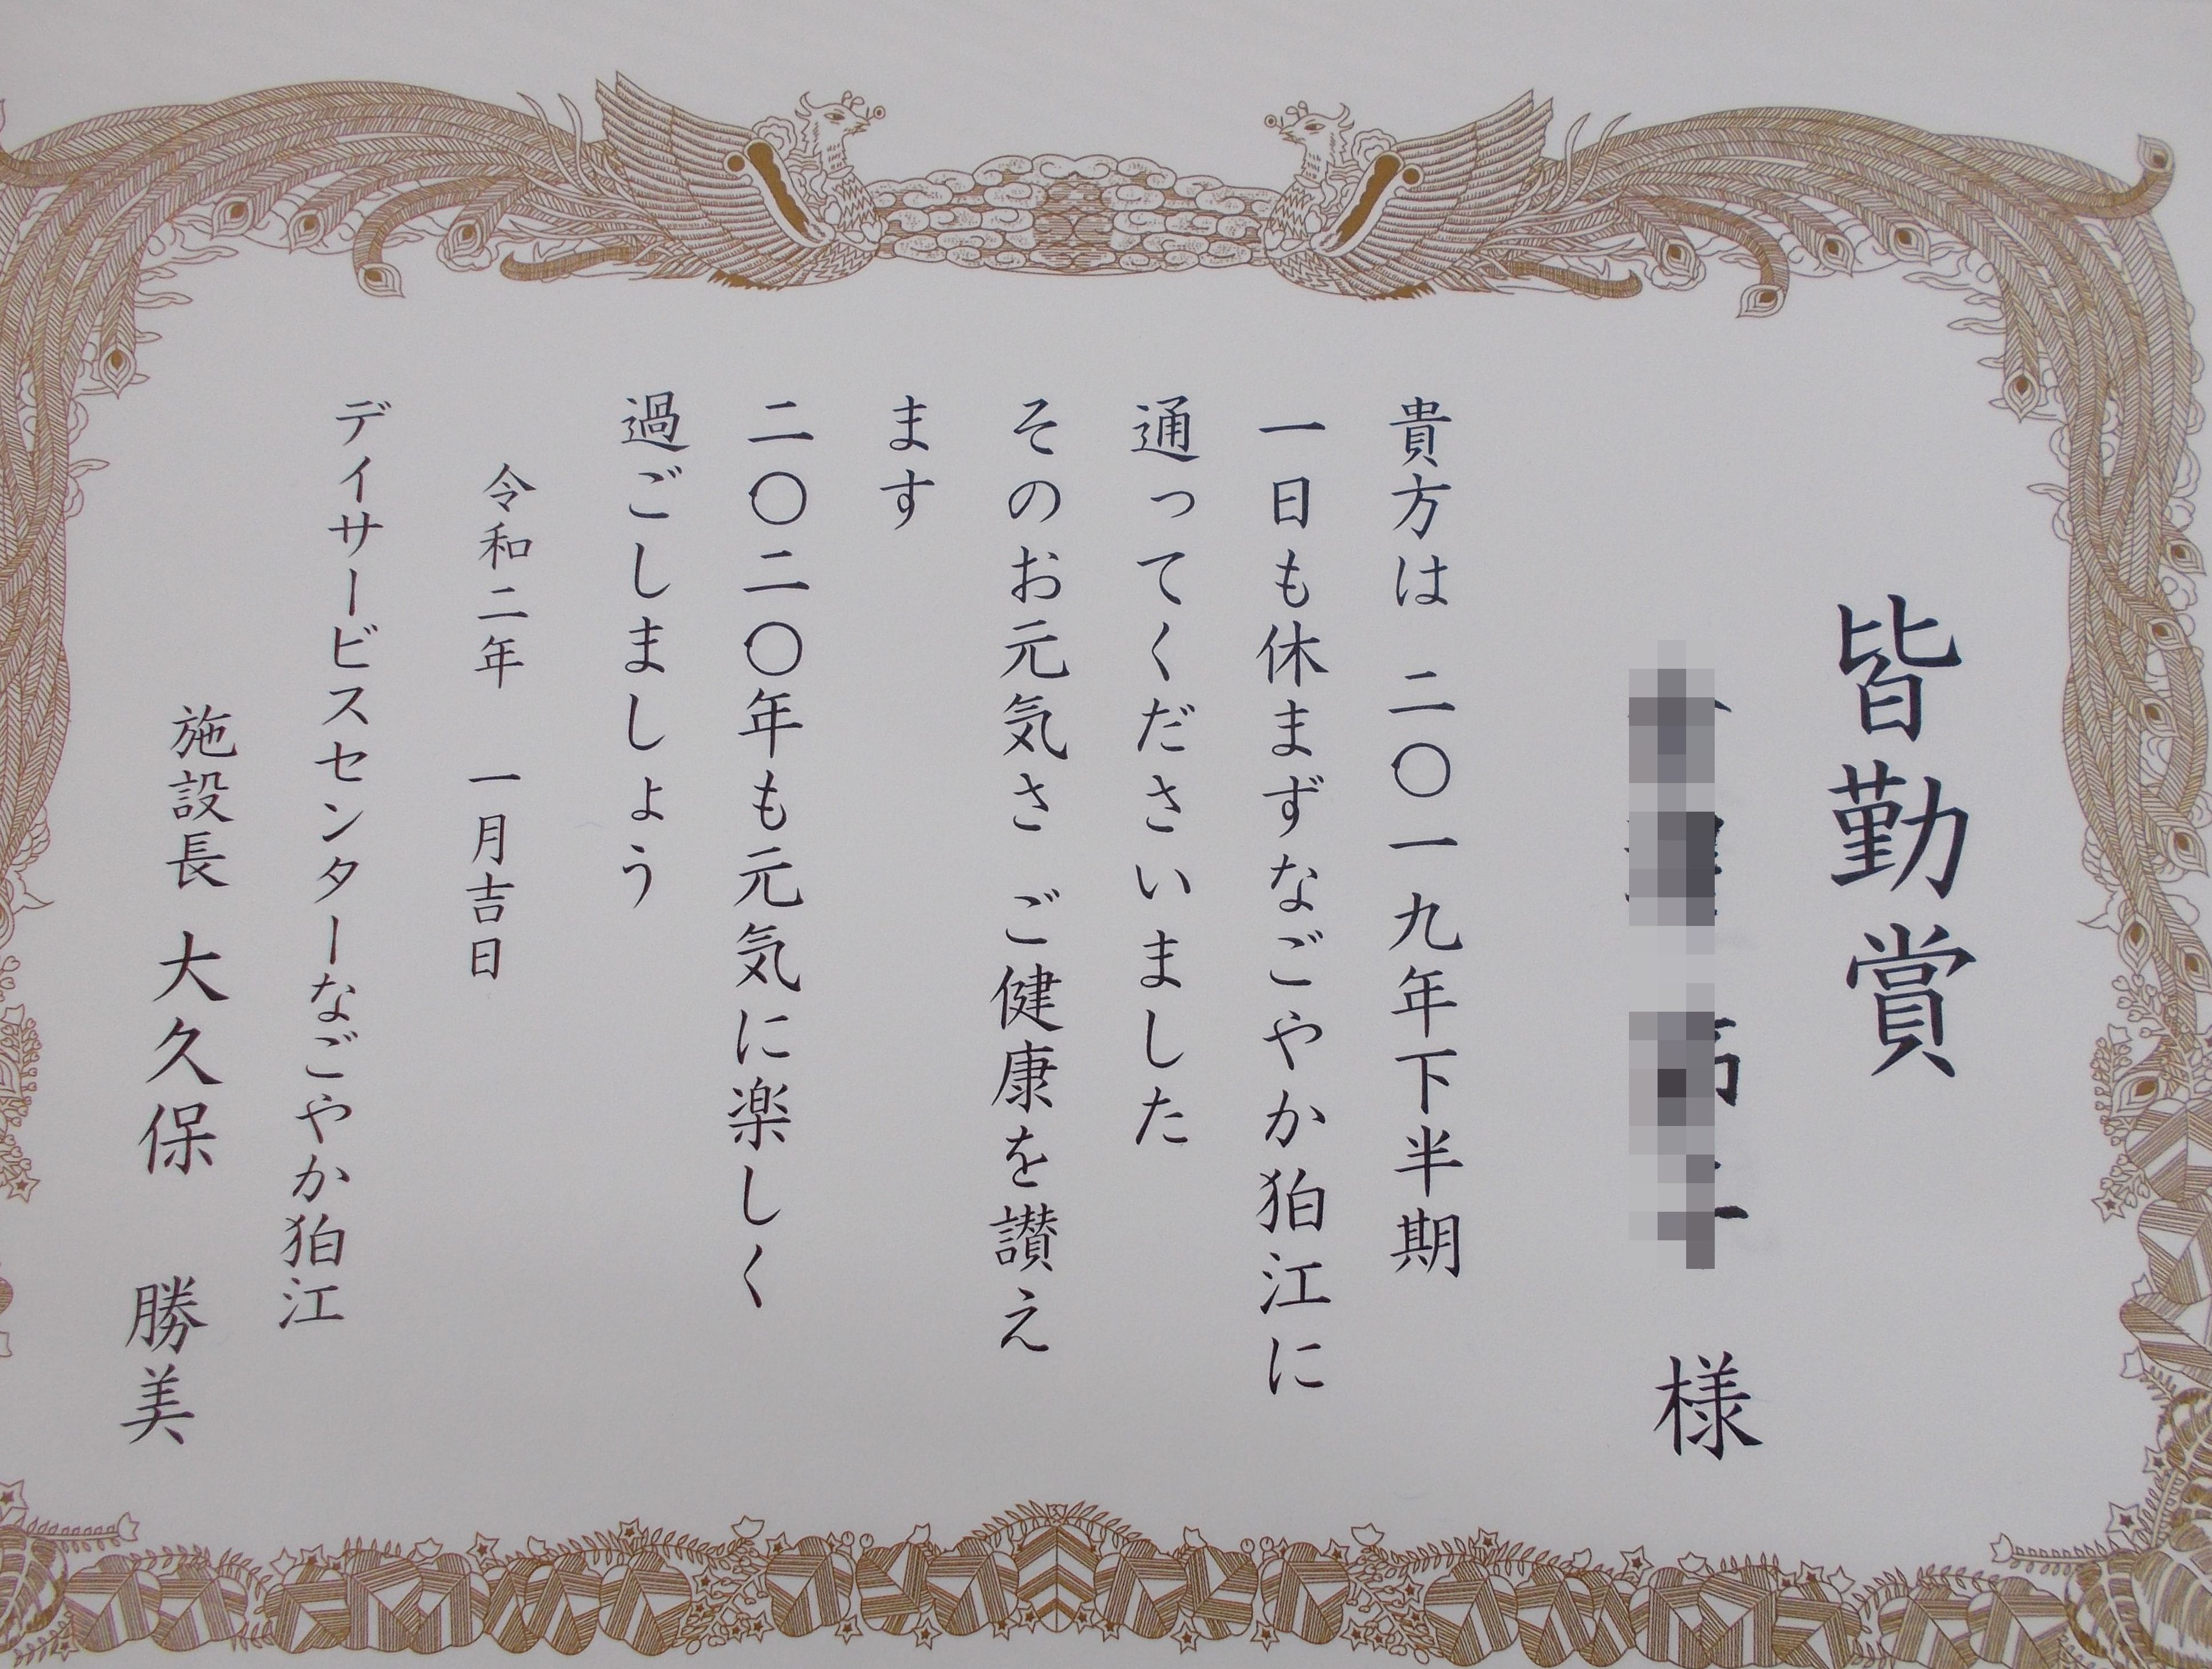 皆勤賞
様
貴方は 二〇一九年下半期
一日も休まずなごやか狛江に
通ってくださいました
そのお元気さ ご健康を讃え
ます
二〇二〇年も元気に楽しく
過ごしましょう
令和二年 一月吉日
デイサービスセンターなごやか狛江
施設長 大久保 勝美